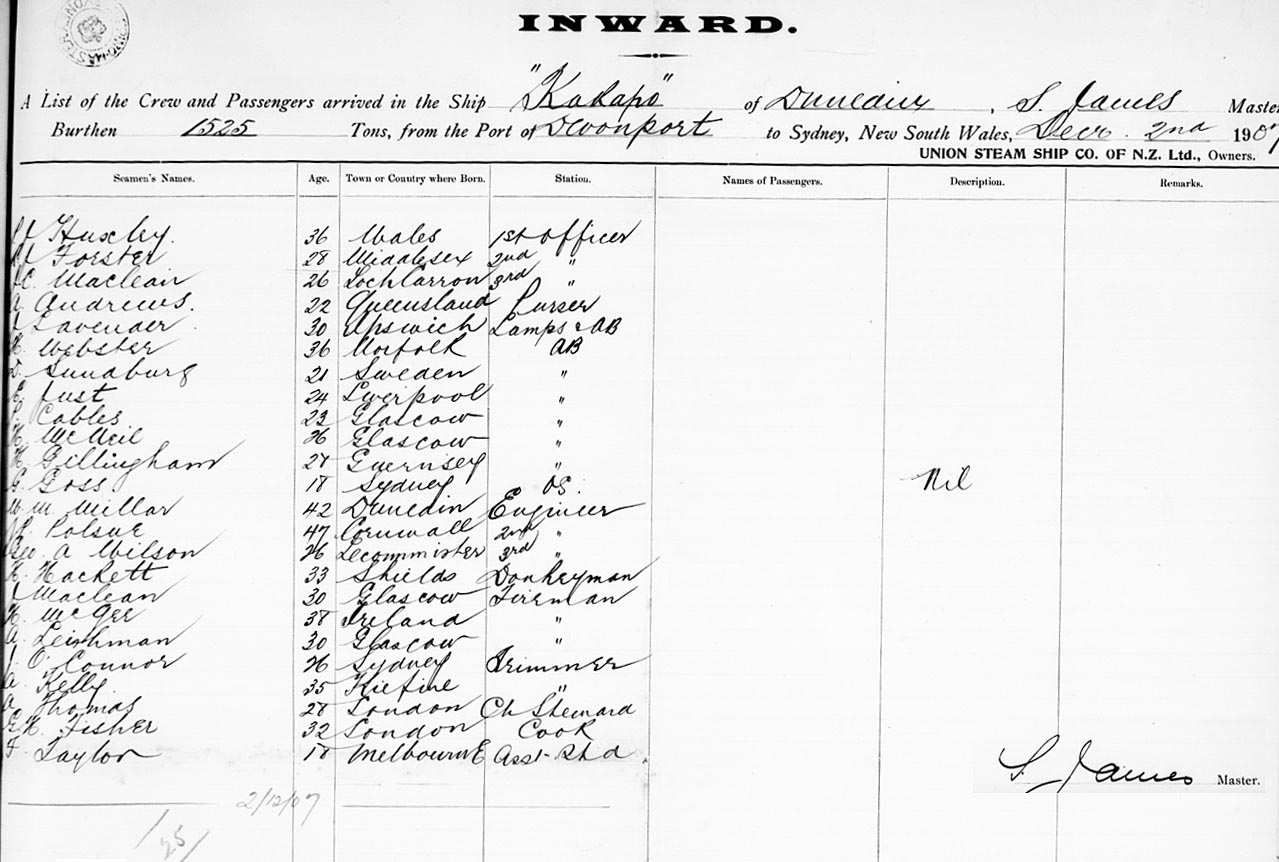 INWARD.
A List of the Crew and Passengers arrived in the Ship "Kakapo" of Dunedin, S. James Master
Burthen 1525 Tons, from the Port of Devonport to Sydney, New South Wales, Decr. 2nd 1907
UNION STEAM SHIP CO. OF N.Z. Ltd., Owners.
Seamen's Names. Age. Town or Country where Born. Station. Names of Passengers. Description. Remarks.
Huxley. 36 Wales 1st Officer
Forster 28 Middlesex 2nd "
Maclean 26 Loch Carron 3rd "
A. Andrews. 22 Queensland Purser
Lavender. 30 Ipswich Lamps & AB
Webster 36 Norfolk AB
Sundburg 21 Sweden "
Just 24 Liverpool "
Cables 23 Glascow "
McNeil 26 Glascow "
H. Gillingham 27 Guernsey "
G. Goss. 18 Sydney OS. Nil
Wm. Millar 42 Dunedin Engineer
Polsue 47 Cornwall 2nd "
Geo. A Wilson 26 Leominister 3rd "
Hackett 33 Shields Donkeyman
Maclean 30 Glascow Fireman
McGee 38 Ireland "
A. Leishman 30 Glascow "
J. O'Connor 26 Sydney Trimmer
Kelly. 35 "
Thomas 28 London Ch Steward
G.H. Fisher 32 London Cook
F. Taylor 18 Melbourne Asst. Std.
S. James Master.
2/12/07
/25/